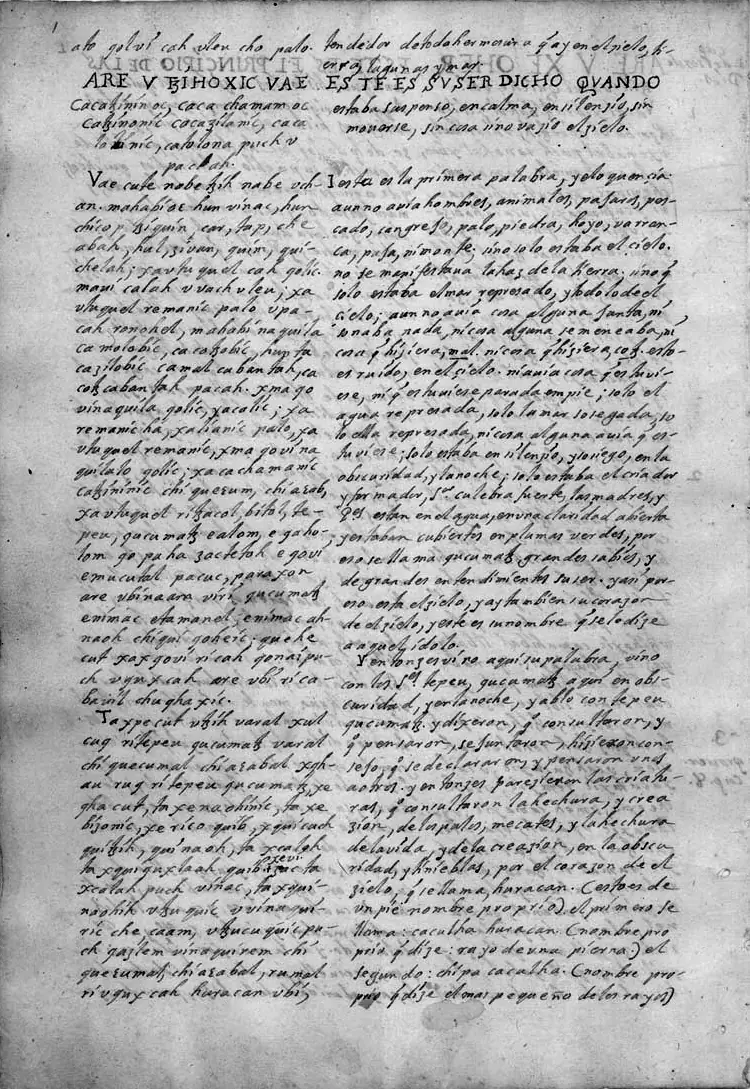 1
ato qolvi cah vleu cho palo.
ARE V ꜩIHOXIC VAE
Cacaꜩininoc, caca chamamoc
Caꜩinonic cacazilanic, caca
lolinic, catolona puch v
pa cah.
Vae cute nabe tzih nabe vch
an. mahabioc hun vinac, hun
chicop, ꜩiquin, car, tap, che
abah, hul, zivan, quim, qui-
chelah; xa vtuquel cah golic
mavi calah v vach vleu; xa
vtuquel remanic palo v pa
cah ronohel, mahabi naquila
ca molobic, ca coꜩobic, hunta
cazilobic camal cabantah, ca
coꜩ cabantah pa cah. xma qo
vinaquila golic, yacolic; xa
remanic ha, xa lianic palo, xa
vtuquel remanic, xma qovi na
quilalo golic; xa cachamanic
Caꜩininic chi quecum, chi acab,
xa vtuquel ri tzacol, bitol, te-
peu, qucumatz e alom, e qaho-
lom qo pa ha zactetoh e qovi
e mucutal pa cuc, pa raxon
are vbinaam vi ri qucumatz
e nimac etamanel, e nimac ah-
naoh chi qui qoheic; quehe
cut xax qovi ri cah qo nai pu-
ch v qux cah are vbi ri ca-
bavil chughaxic.
Ta xpe cut v tzih varal xul
cuq ri tepeu qucumatz varal
chi quecumal chi acabal xgh-
au ruq ri tepeu qucumatz, xe
gha cut, ta xenaohinic, ta xe
bizonic, xe rico quib, xquicuch
qui tzih, qui naoh, ta xcalah
ta xquiquxlaah quib xevi ta
xcalah puch vinac, ta xqui-
naohih v tzuquic v vinaqui-
ric che caam, v tzucuquic pu-
ch gazlem vinaquirem chi
quecumal chi acabal, rumal
ri v qux cah huracan vbi,
tendedor de toda hermosura q̃ ay en el zielo, ti-
erra, lagunas y mar.
ESTE ES SV SER DICHO QVANDO
estaba suspenso, en calma, en silenzio, sin
moverse, sin cosa sino vazio el zielo.
I esta es la primera palabra, y eloquencia.
aun no avia hombres, animales, paxaros, pes-
cado, cangrejo, palo, piedra, hoyo, varran-
ca, paja, ni monte, sino solo estaba el cielo.
no se manifestava la haz de la tierra. sino q̃
solo estaba el mar represado, y todo lo de el
cielo; aun no avia cosa alguna junta, ni
sonaba nada, ni cosa alguna se meneaba, ni
cosa q̃ hiziera, mal, ni cosa q̃ hiziera, cotz. esto
es ruido, en el zielo. ni avia cosa q̃ estuvi-
ese, ni q̃ estuviese parada en pie; solo el
agua represada, solo la mar sosegada, so
lo ella represada, ni cosa alguna avia q̃ es-
tuviese; solo estaba en silenzio, y sosiego, en la
obscuridad, y la noche; solo estaba el criador
y formador, Sr. culebra fuerte, las madres, y
Pes. estan en el agua, en una claridad abierta
y estaban cubiertos en plumas verdes, por
eso se llama qucumatz grandes sabios, y
de grandes entendimientos su ser. y asi por-
eso esta el zielo, y ay tambien su corazon
de el zielo, y este es su nombre q̃ se le dize
a aquel idolo.
Y entonzes vino aqui su palabra, vino
con los Ses. tepeu, qucumatz aqui en obs-
curidad, y en la noche, y ablo con tepeu
qucumatz. y dixeron, q̃ consultaron, y
q̃ pensaron, se juntaron, hizieron con-
sejo, q̃ se declararon, y pensaron unos
a otros. y entonzes parezieron las criatu-
ras, q̃ consultaron la hechura, y crea
zion, de los palos, mecates, y la hechura
de la vida, y de la creazion, en la obscu
ridad, y tinieblas, por el corazon de el
zielo, q̃ se llama, huracan. (esto es de
un pie nombre proprio). el primero se
llama: caculha huracan. (nombre pro
prio q̃ dize: rayo de una pierna.) el
segundo: chipa caculha. (nombre pro-
prio q̃ dize el mas pequeño de los rayos)